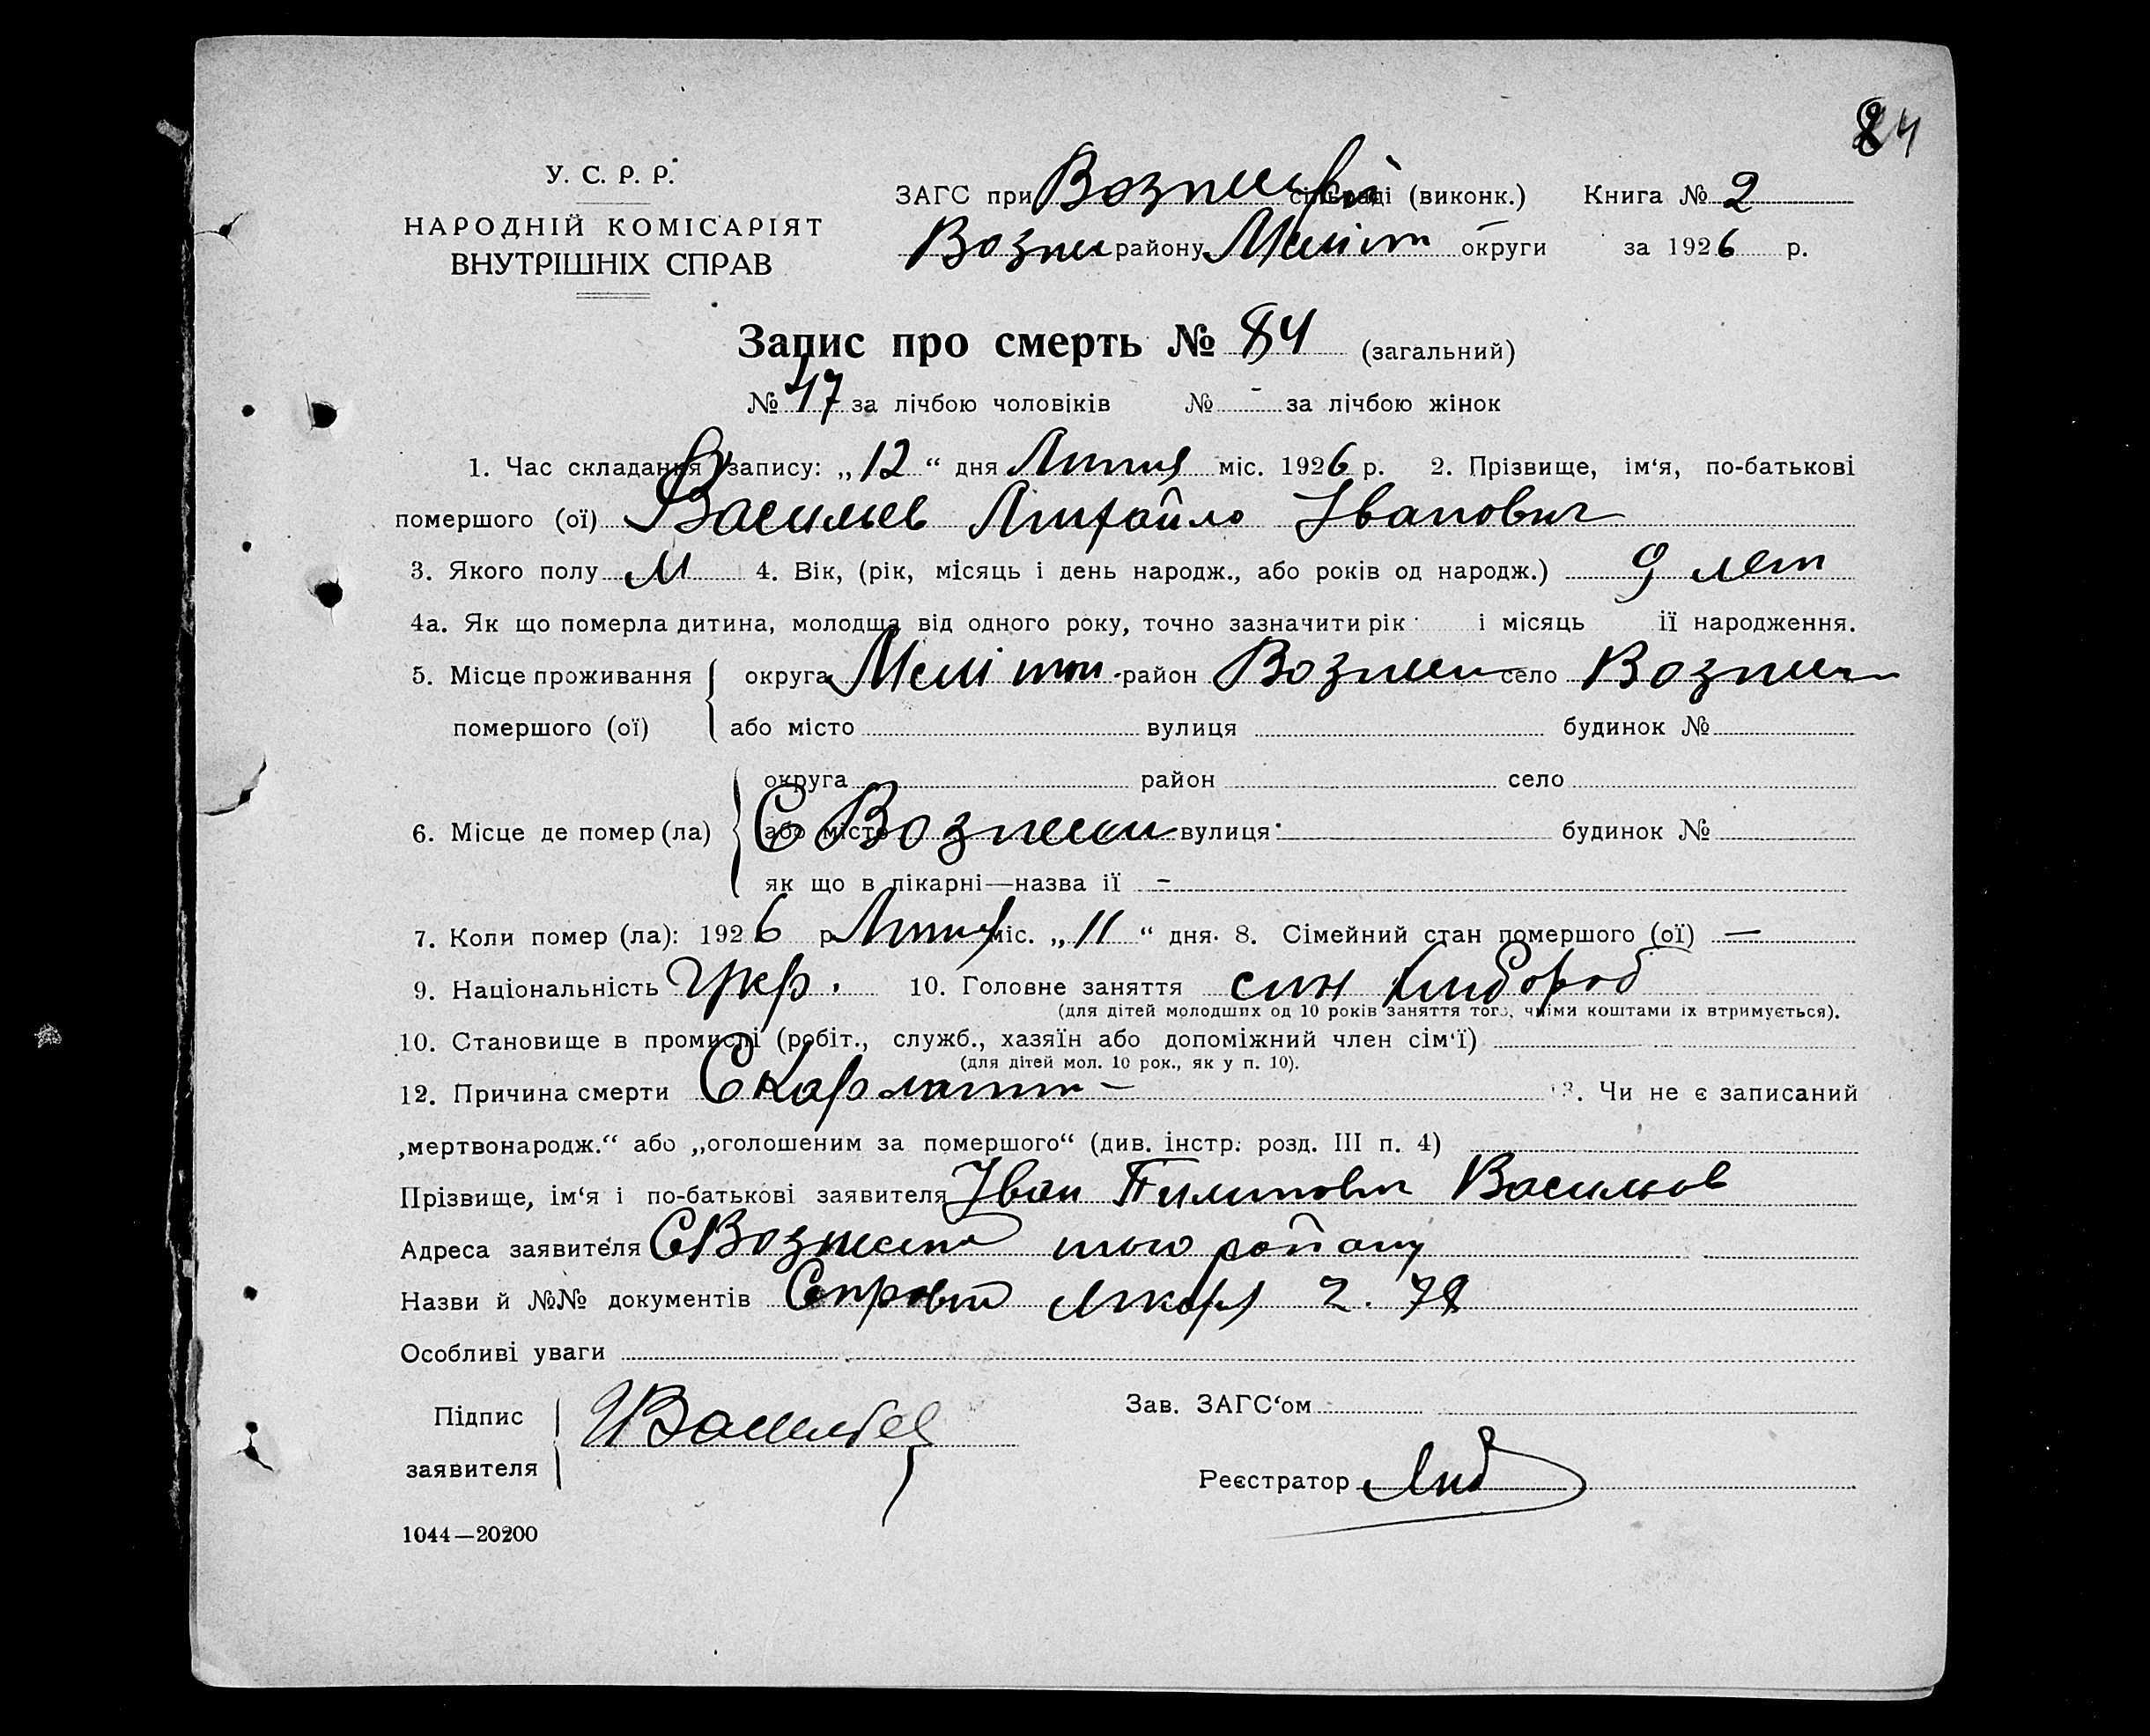 84
У. С. Р. Р.
НАРОДНІЙ КОМІСАРІЯТ
ВНУТРІШНІХ СПРАВ
ЗАГС при сільраді (виконк.) Книга № 2
Возне району Меліт округи за 1926 р.
Запис про смерть № 84 (загальний)
№ 47 за лічбою чоловіків № - за лічбою жінок
1. Час складання запису: „12“ дня Липня міс. 1926 р. 2. Прізвище, ім‘я, по-батькові
помершого (ої) Васильев Михайло Іванович
3. Якого полу М 4. Вік, (рік, місяць і день народж., або років од народж.) 9 лет
4а. Як що померла дитина, молодша від одного року, точно зазначити рік і місяць її народження.
5. Місце проживання округа Меліт район Вознес село Вознес
помершого (ої) або місто вулиця будинок №
округа район село
6. Місце де помер (ла) або місто С Вознесен вулиця будинок №
як що в лікарні—назва її -
7. Коли помер (ла): 1926 р Липня міс. „11“ дня. 8. Сімейний стан помершого (ої) —
9. Національність Укр. 10. Головне заняття син хлібороб
(для дітей молодших од 10 років заняття того, чиїми коштами їх втримується).
10. Становище в промислі (робіт., служб., хазяїн або допоміжний член сім‘ї)
(для дітей мол. 10 рок., як у п. 10).
12. Причина смерти Скарлатин – 13. Чи не є записаний
„мертвонародж.“ або „оголошеним за помершого“ (див. інстр. розд. III п. 4)
Прізвище, ім‘я і по-батькові заявителя Іван Васильов
Адреса заявителя С Вознесен того району
Назви й №№ документів Справка лікаря 2. 78
Особливі уваги
Підпис
заявителя ИВасильев
Зав. ЗАГС‘ом
Реєстратор
1044—20200